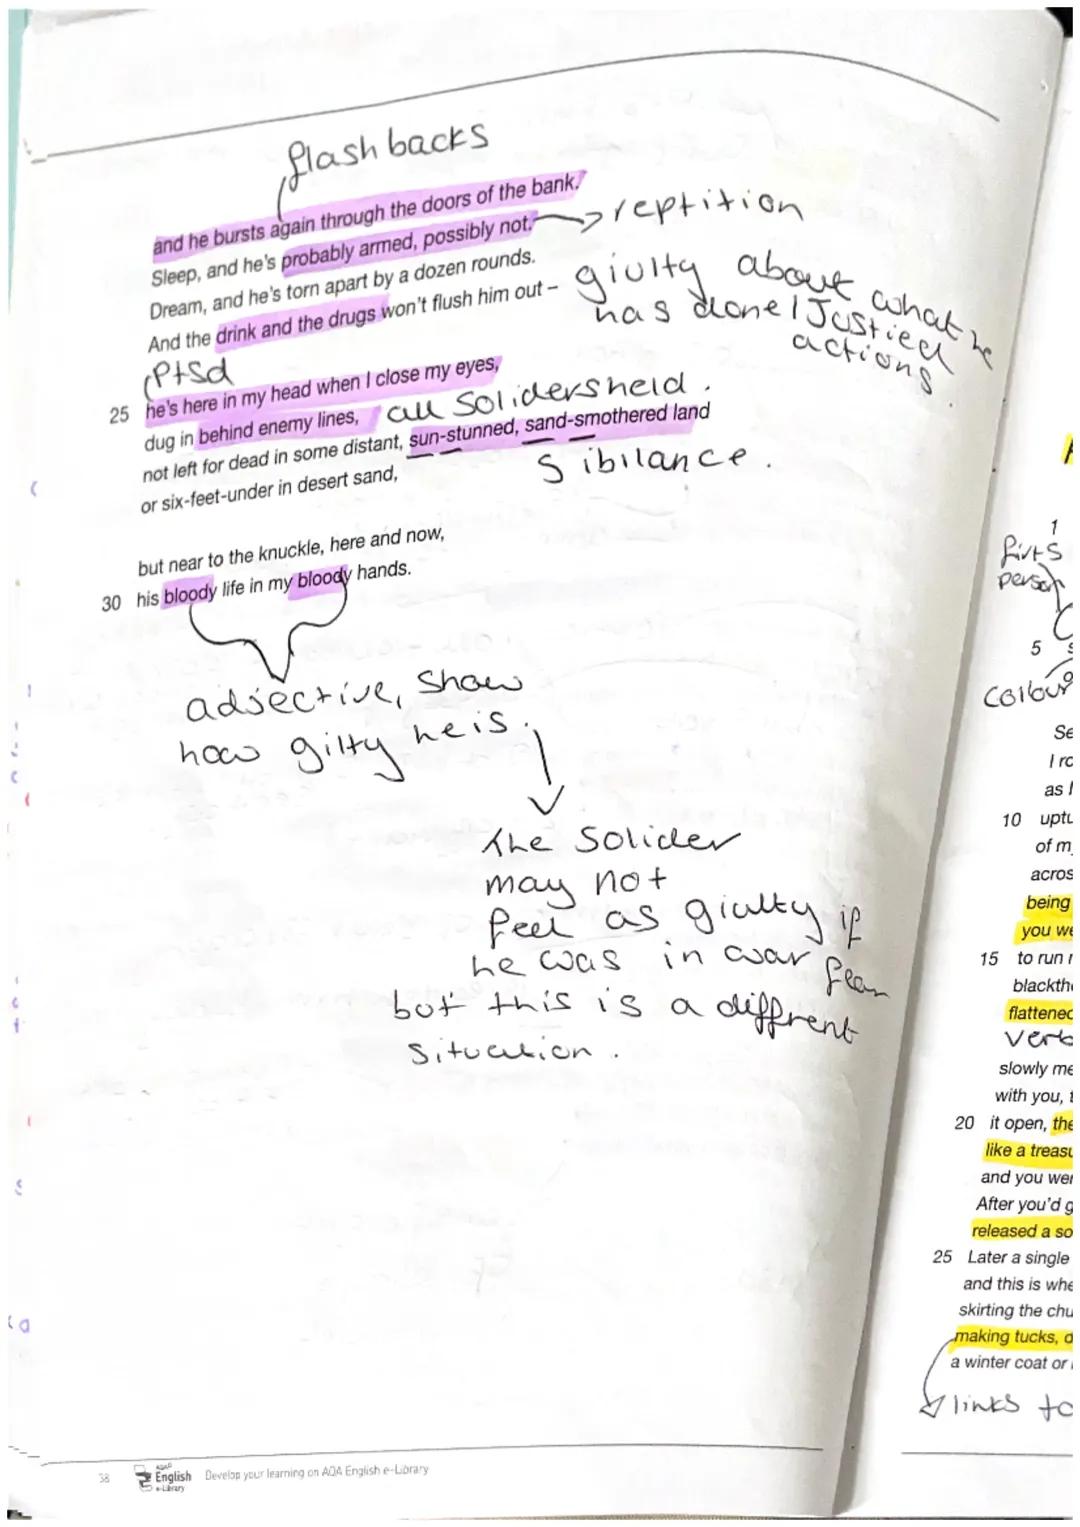 flash backs
and he bursts again through the doors of the bank.
Sleep, and he's probably armed, possibly not.
reptition
Dream, and he's torn apart by a dozen rounds.
And the drink and the drugs won't flush him out –
giulty about what he
has done / Justied
actions.
Ptsd
25 he's here in my head when I close my eyes,
dug in behind enemy lines,
all Soliders held.
not left for dead in some distant, sun-stunned, sand-smothered land
or six-feet-under in desert sand,
Sibilance.
but near to the knuckle, here and now,
30 his bloody life in my bloody hands.
adjective, Show
how gilty he is.
The Solider
may not
feel as giulty if
he was in war
but this is a diffrent
situation.
38
AQA
English
e-Library
Develop your learning on AQA English e-Library
1
firts
person
5
Colour
Se
I ro
as I
10 uptu
of m
acros
being
you we
15 to run
blackth
flattened
verb
slowly me
with you,
20 it open, the
like a treasu
and you wer
After you'd g
released a so
25 Later a single
and this is whe
skirting the chu
making tucks, d
a winter coat or
links to